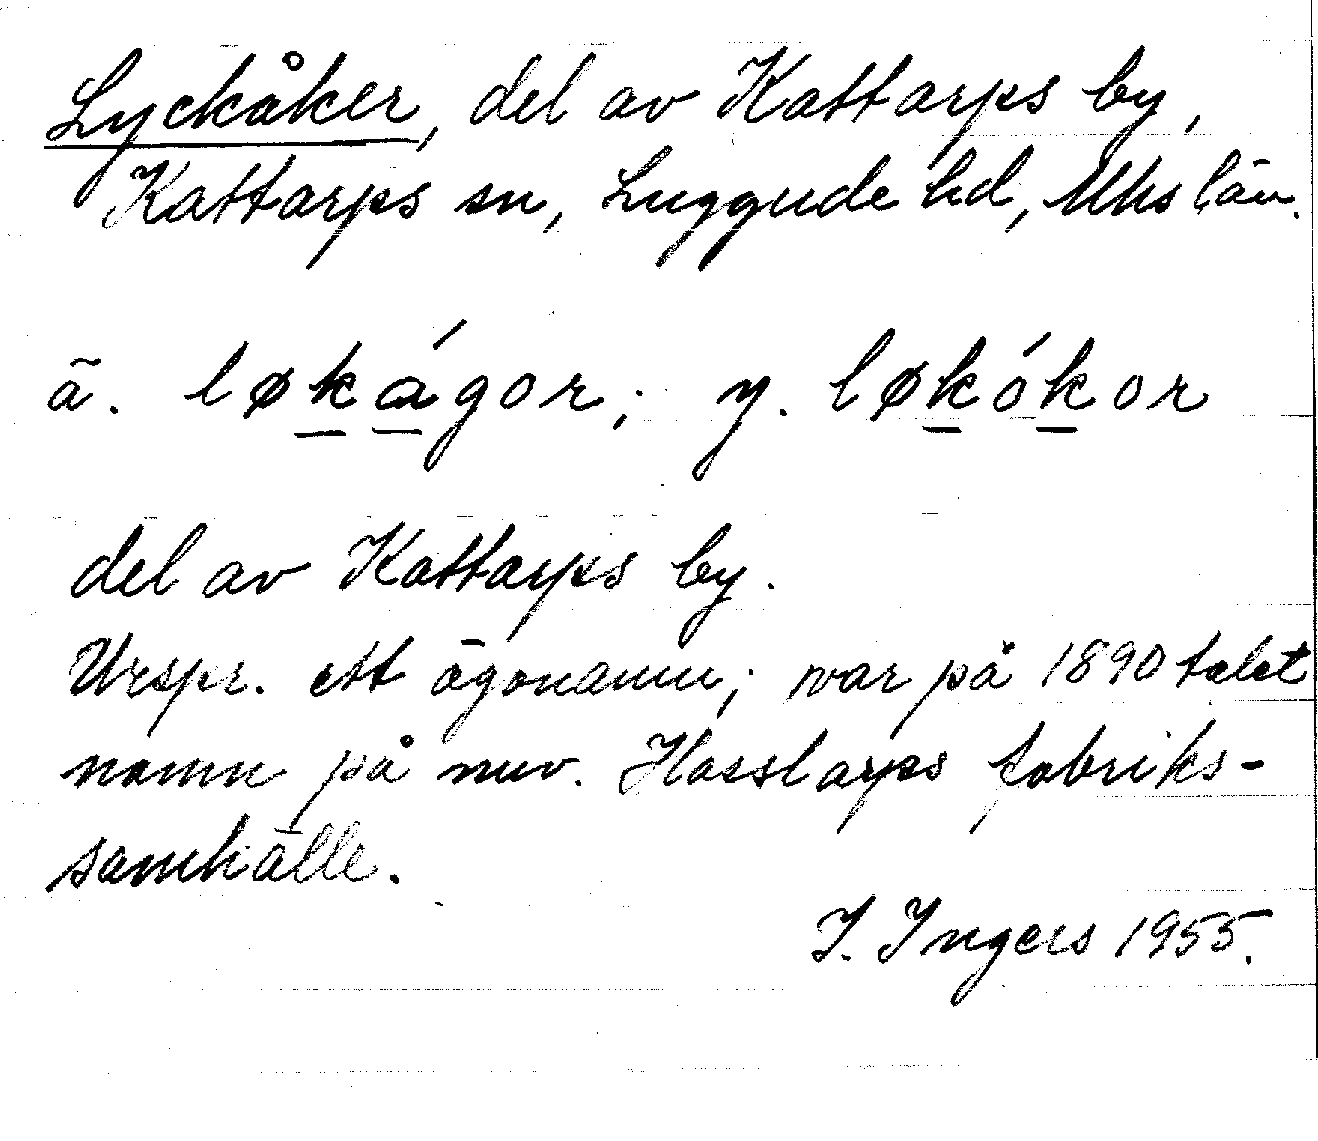 Lyckåker, del av Kattarps by,
Kattarps sn, Luggude hd, Mhs län.
ä. løkágor; y. løkókor
del av Kattarps by.
Urspr. ett ägonamn; var på 1890 talet
namn på nuv. Hasslarps fabriks-
samhälle.
I. Ingers 1955.